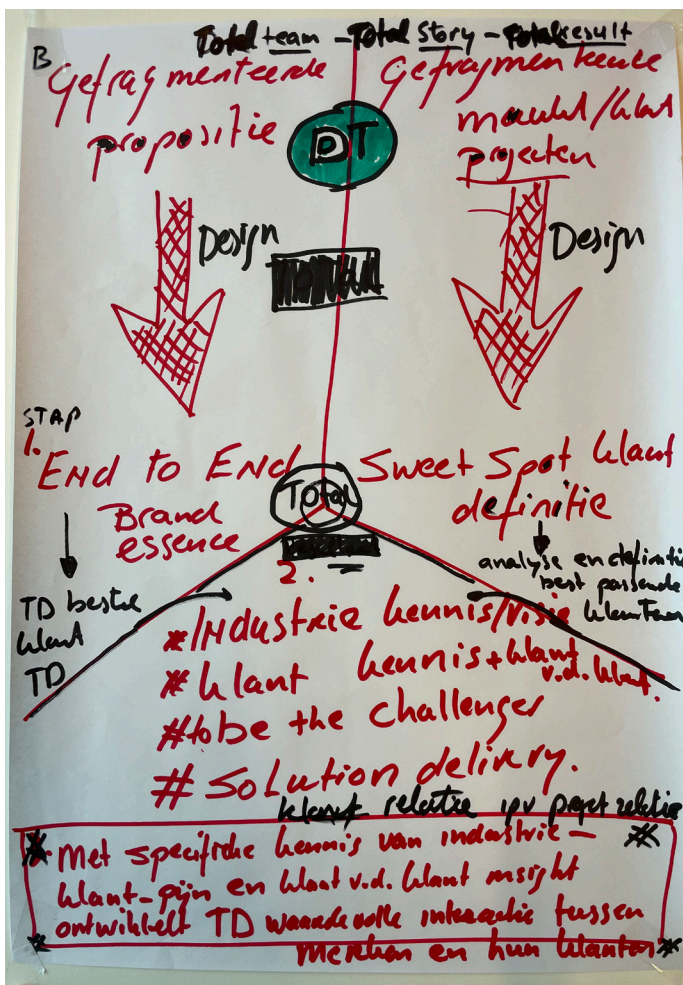 Total team - Total Story - Total result
B
Gefragmenteerde
propositie
Gefragmenteerde
markt/klant
projecten
DT
Design
Design
STAP
1.
End to End
Brand
essence
Total
Sweet spot klant
definitie
TD beste
klant
TD
analyse en definitie
best passende
klanten
2.
# Industrie kennis/visie
# klant kennis + klant
v.d. klant.
# to be the challenger
# Solution delivery.
klant relatie ipv projet relatie
# Met specifieke kennis van industrie - #
klant-pijn en klant v.d. klant insight
ontwikkelt TD waardevolle interactie tussen
merken en hun klanten